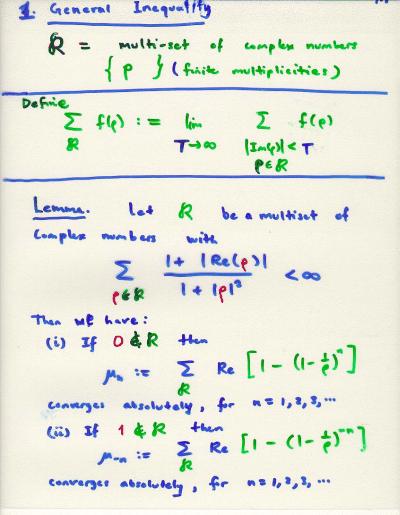 1. General Inequality
R = multi-set of complex numbers
{ρ} (finite multiplicities)
Define
∑_R f(ρ) := lim_{T→∞} ∑_{|Im(ρ)|<T, ρ∈R} f(ρ)
Lemma. Let R be a multiset of
complex numbers with
∑_{ρ∈R} (1 + |Re(ρ)|) / (1 + |ρ|²) < ∞
Then we have:
(i) If 0 ∉ R then
μ_n := ∑_R Re [1 - (1 - 1/ρ)^n]
converges absolutely, for n = 1, 2, 3, ...
(ii) If 1 ∉ R then
μ_{-n} := ∑_R Re [1 - (1 - 1/ρ)^{-n}]
converges absolutely, for n = 1, 2, 3, ...